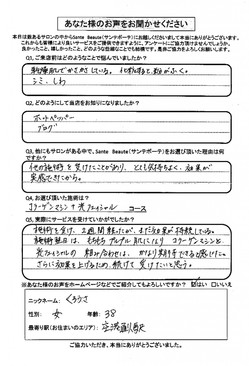 あなた様のお声をお聞かせください
本日は数あるサロンの中からSante Beaute(サンテボーテ)にお越しくださいまして本当にありがとうございます。
これからも皆様により良いサービスをご提供できますように、アンケートにご協力頂けませんでしょうか。
良かったこと、嬉しかったこと、どのような些細なことでも結構です。是非ご協力をよろしくお願いします。
Q1, ご来店前はどのようなことで悩んでいましたか?
乾燥肌でかさかさしている。化粧すると粉がふく。
シミ、しわ
Q2, どのようにして当店をお知りになりましたか?
ホットペッパー
ブログ
Q3, 他にもサロンがある中で、Sante Beaute(サンテボーテ)をお選び頂いた理由は何ですか?
他の施術を受けたことがあり、とても気持ちよく、効果が
実感できたから。
Q4, お選び頂いた施術は?
コラーゲンマシン+光フェイシャル コース
Q5, 実際にサービスを受けていかがでしたか?
施術を受け、2週間経ったが、まだ効果が持続している。
施術翌日は、もちもちプルプル肌になり コラーゲンマシンと
光フェイシャルの組み合わせは、かなり期待できると感じた。
さらに効果を上げるため、続けて受けたいと思う。
※あなた様のお声をホームページなどでご紹介してもよろしいですか? はい 口いいえ
ニックネーム: くろうさ
性別: 女 年齢: 38
最寄り駅(お住まいのエリア):
ご協力いただき、本当にありがとうございました。